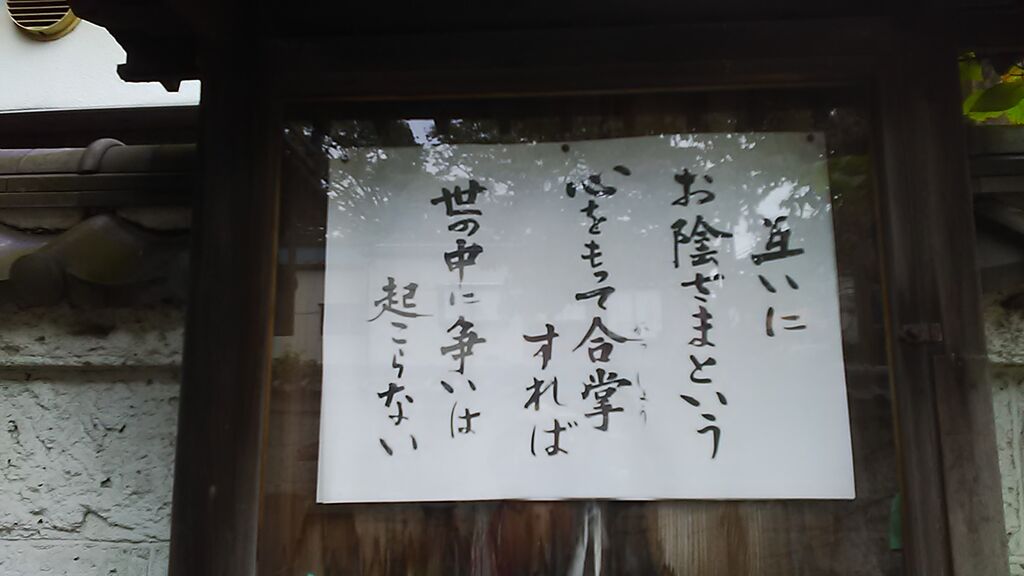 互いに
お陰ざまという
心をもって合掌
がっしょう
すれば
世の中に争いは
起こらない